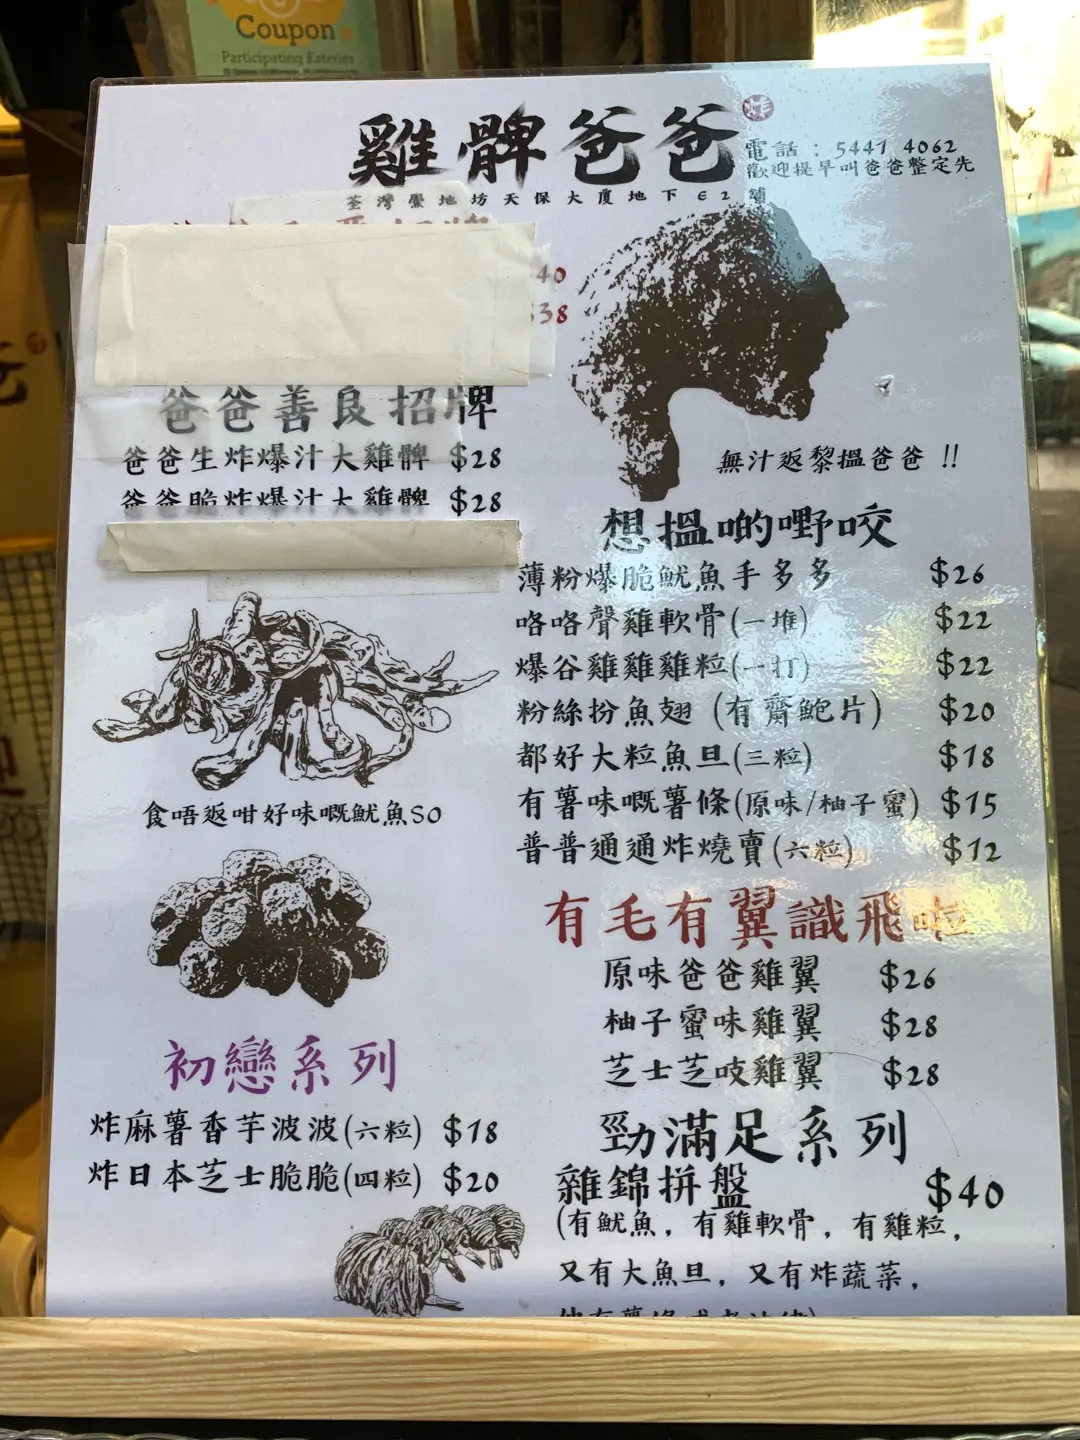 Coupon
Participating Eateries
雞髀爸爸
炸
電話：5441 4062
歡迎提早叫爸爸整定先
荃灣鱟地坊天保大廈地下E2舖
40
$38
爸爸善良招牌
爸爸生炸爆汁大雞髀 $28
爸爸脆炸爆汁大雞髀 $28
無汁返黎搵爸爸 !!
食唔返咁好味嘅魷魚SO
初戀系列
炸麻薯香芋波波(六粒) $18
炸日本芝士脆脆(四粒) $20
想搵啲嘢咬
薄粉爆脆魷魚手多多 $26
咯咯聲雞軟骨(一堆) $22
爆谷雞雞雞粒(一打) $22
粉絲扮魚翅 (有齋鮑片) $20
都好大粒魚旦(三粒) $18
有薯味嘅薯條(原味/柚子蜜) $15
普普通通炸燒賣(六粒) $12
有毛有翼識飛啦
原味爸爸雞翼 $26
柚子蜜味雞翼 $28
芝士芝吱雞翼 $28
勁滿足系列
雜錦拼盤 $40
(有魷魚，有雞軟骨，有雞粒，
又有大魚旦，又有炸蔬菜，